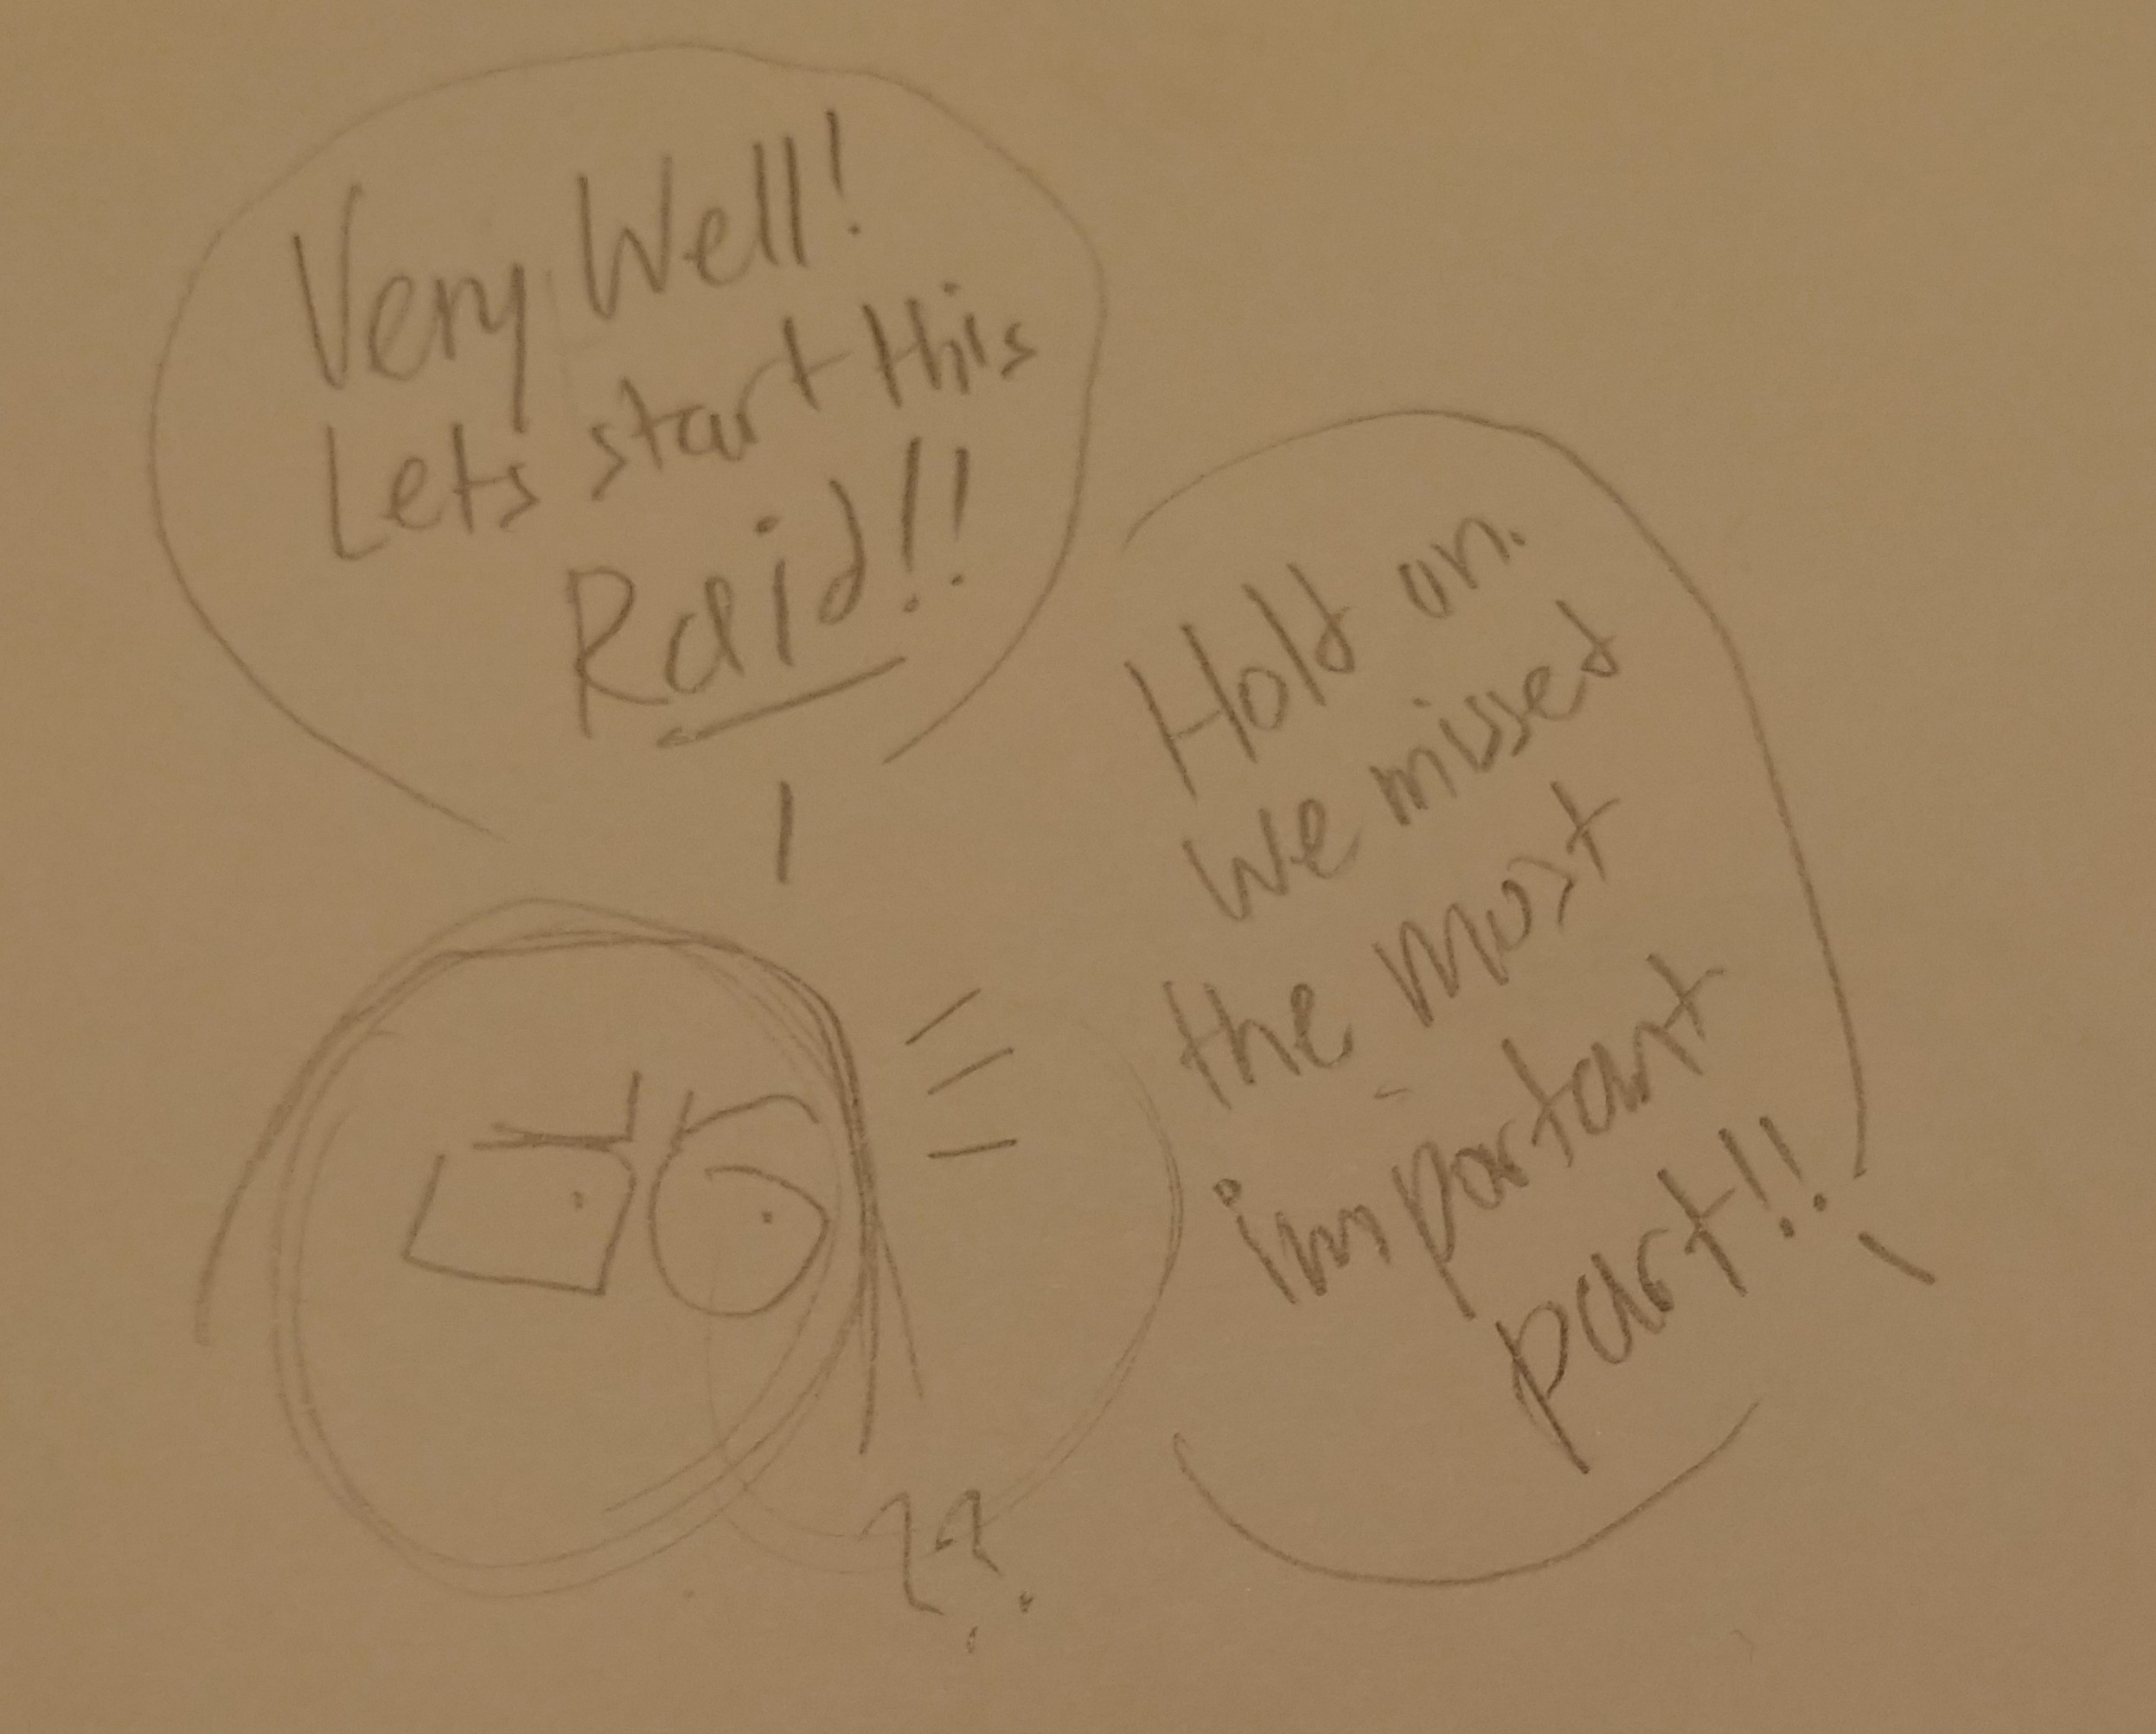 Very Well!
Lets start this
Raid!!
Hold on.
We missed
the most
important
part!!
??